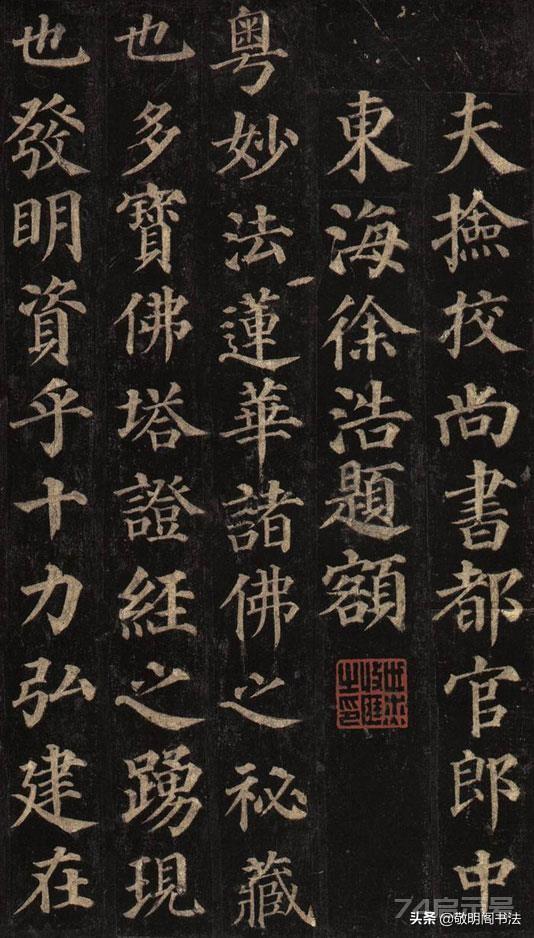 夫撿挍尚書都官郎中
東海徐浩題額
粤妙法蓮華諸佛之祕藏
也多寶佛塔證經之踴現
也發明資乎十力弘建在
头条 @敬明阁书法